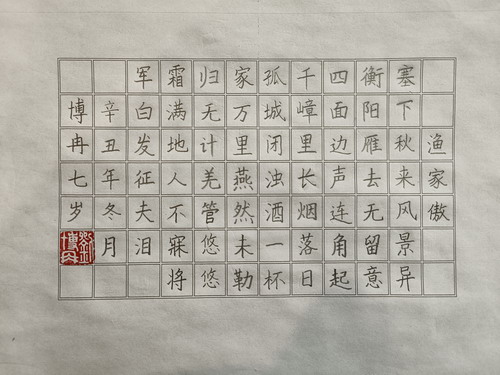 渔家傲
塞下秋来风景异
衡阳雁去无留意
四面边声连角起
千嶂里长烟落日
孤城闭浊酒一杯
家万里燕然未勒
归无计羌管悠悠
霜满地人不寐将
军白发征夫泪
辛丑年冬月
博冉七岁
博冉